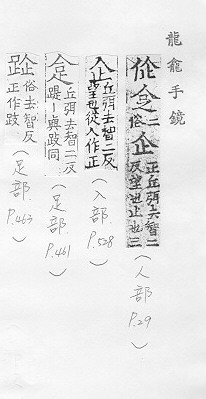 龍龕手鏡
俗二企正丘弭去智二反望也止也二
(人部 P.29)
丘弭去智二反望也從人作正
(入部 P.528)
丘弭去智二反
(足部 P.461)
俗去智反正作跂
(足部 P.463)